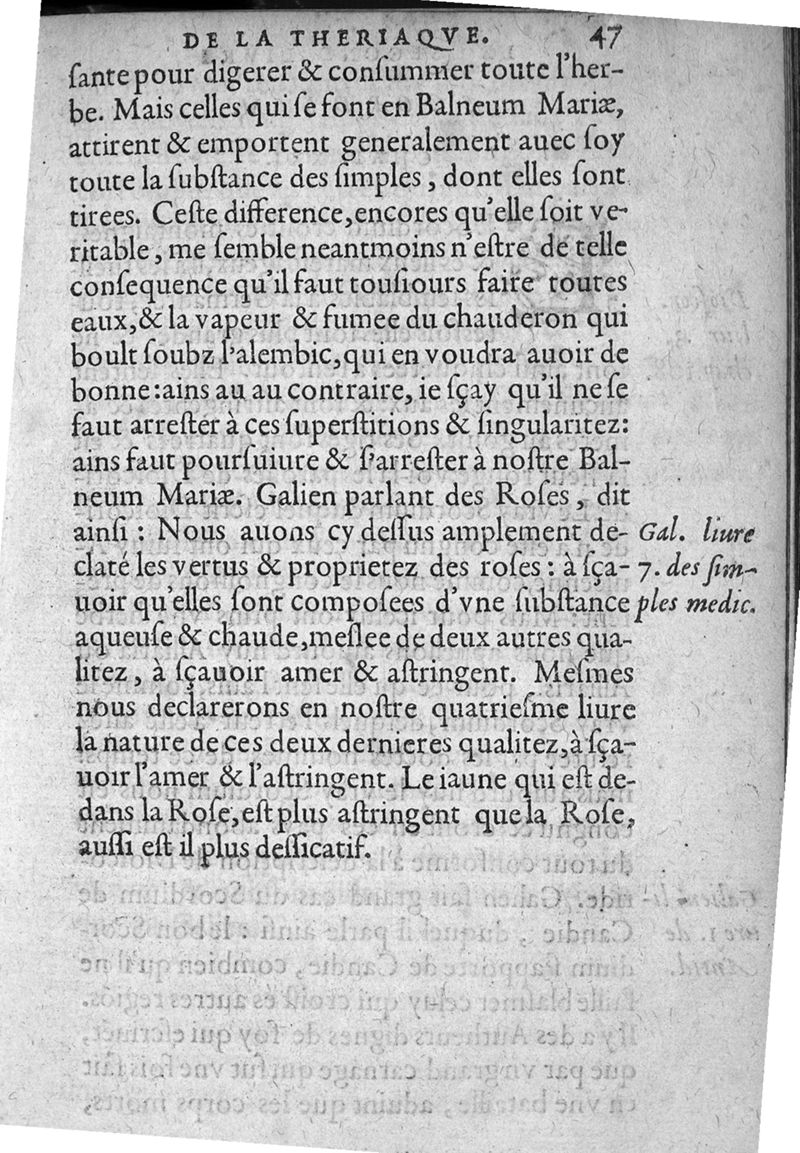 DE LA THERIAQVE. 47
ſante pour digerer & conſummer toute l'her-
be. Mais celles qui ſe font en Balneum Mariæ,
attirent & emportent generalement auec ſoy
toute la ſubſtance des ſimples, dont elles ſont
tirees. Ceſte difference, encores qu'elle ſoit ve-
ritable, me ſemble neantmoins n'eſtre de telle
conſequence qu'il faut touſiours faire toutes
eaux, & la vapeur & fumee du chauderon qui
boult ſoubz l'alembic, qui en voudra auoir de
bonne: ains au au contraire, ie ſçay qu'il ne ſe
faut arreſter à ces ſuperſtitions & ſingularitez:
ains faut pourſuiure & ſ'arreſter à noſtre Bal-
neum Mariæ. Galien parlant des Roſes, dit
ainſi : Nous auons cy deſſus amplement de-
claté les vertus & proprietez des roſes : à ſça-
uoir qu'elles ſont compoſees d'vne ſubſtance
aqueuſe & chaude, meſlee de deux autres qua-
litez, à ſçauoir amer & aſtringent. Meſmes
nous declarerons en noſtre quatrieſme liure
la nature de ces deux dernieres qualitez, à ſça-
uoir l'amer & l'aſtringent. Le iaune qui eſt de-
dans la Roſe, eſt plus aſtringent que la Roſe,
auſſi eſt il plus deſſicatif.
Gal. liure
7. des ſim-
ples medic.